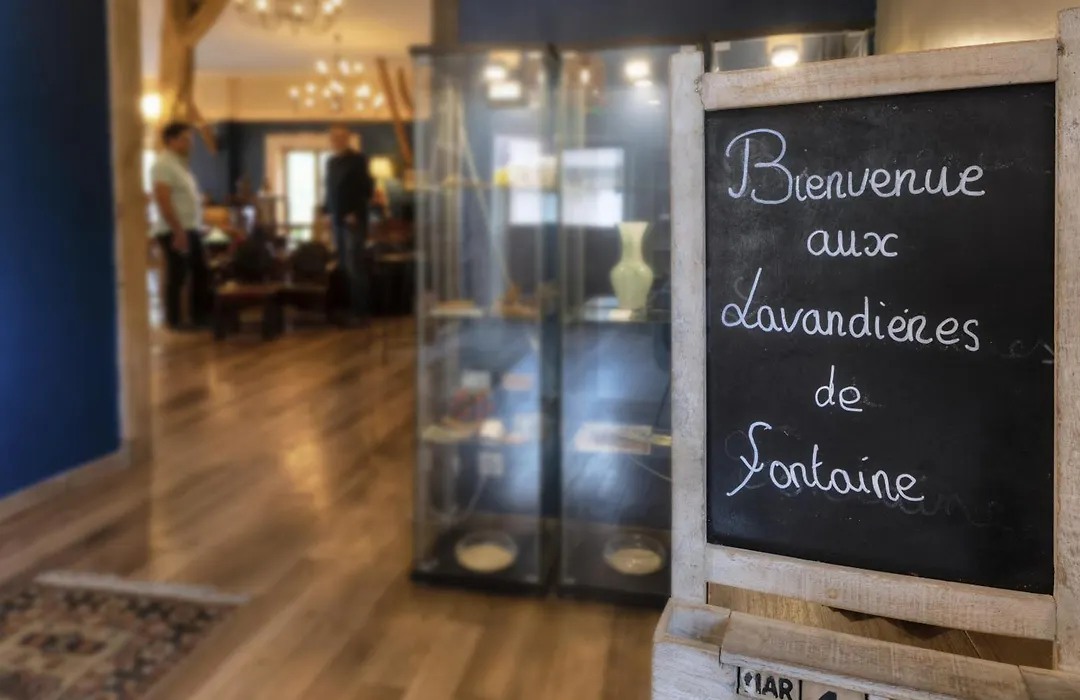 Bienvenue
aux
Lavandières
de
Fontaine